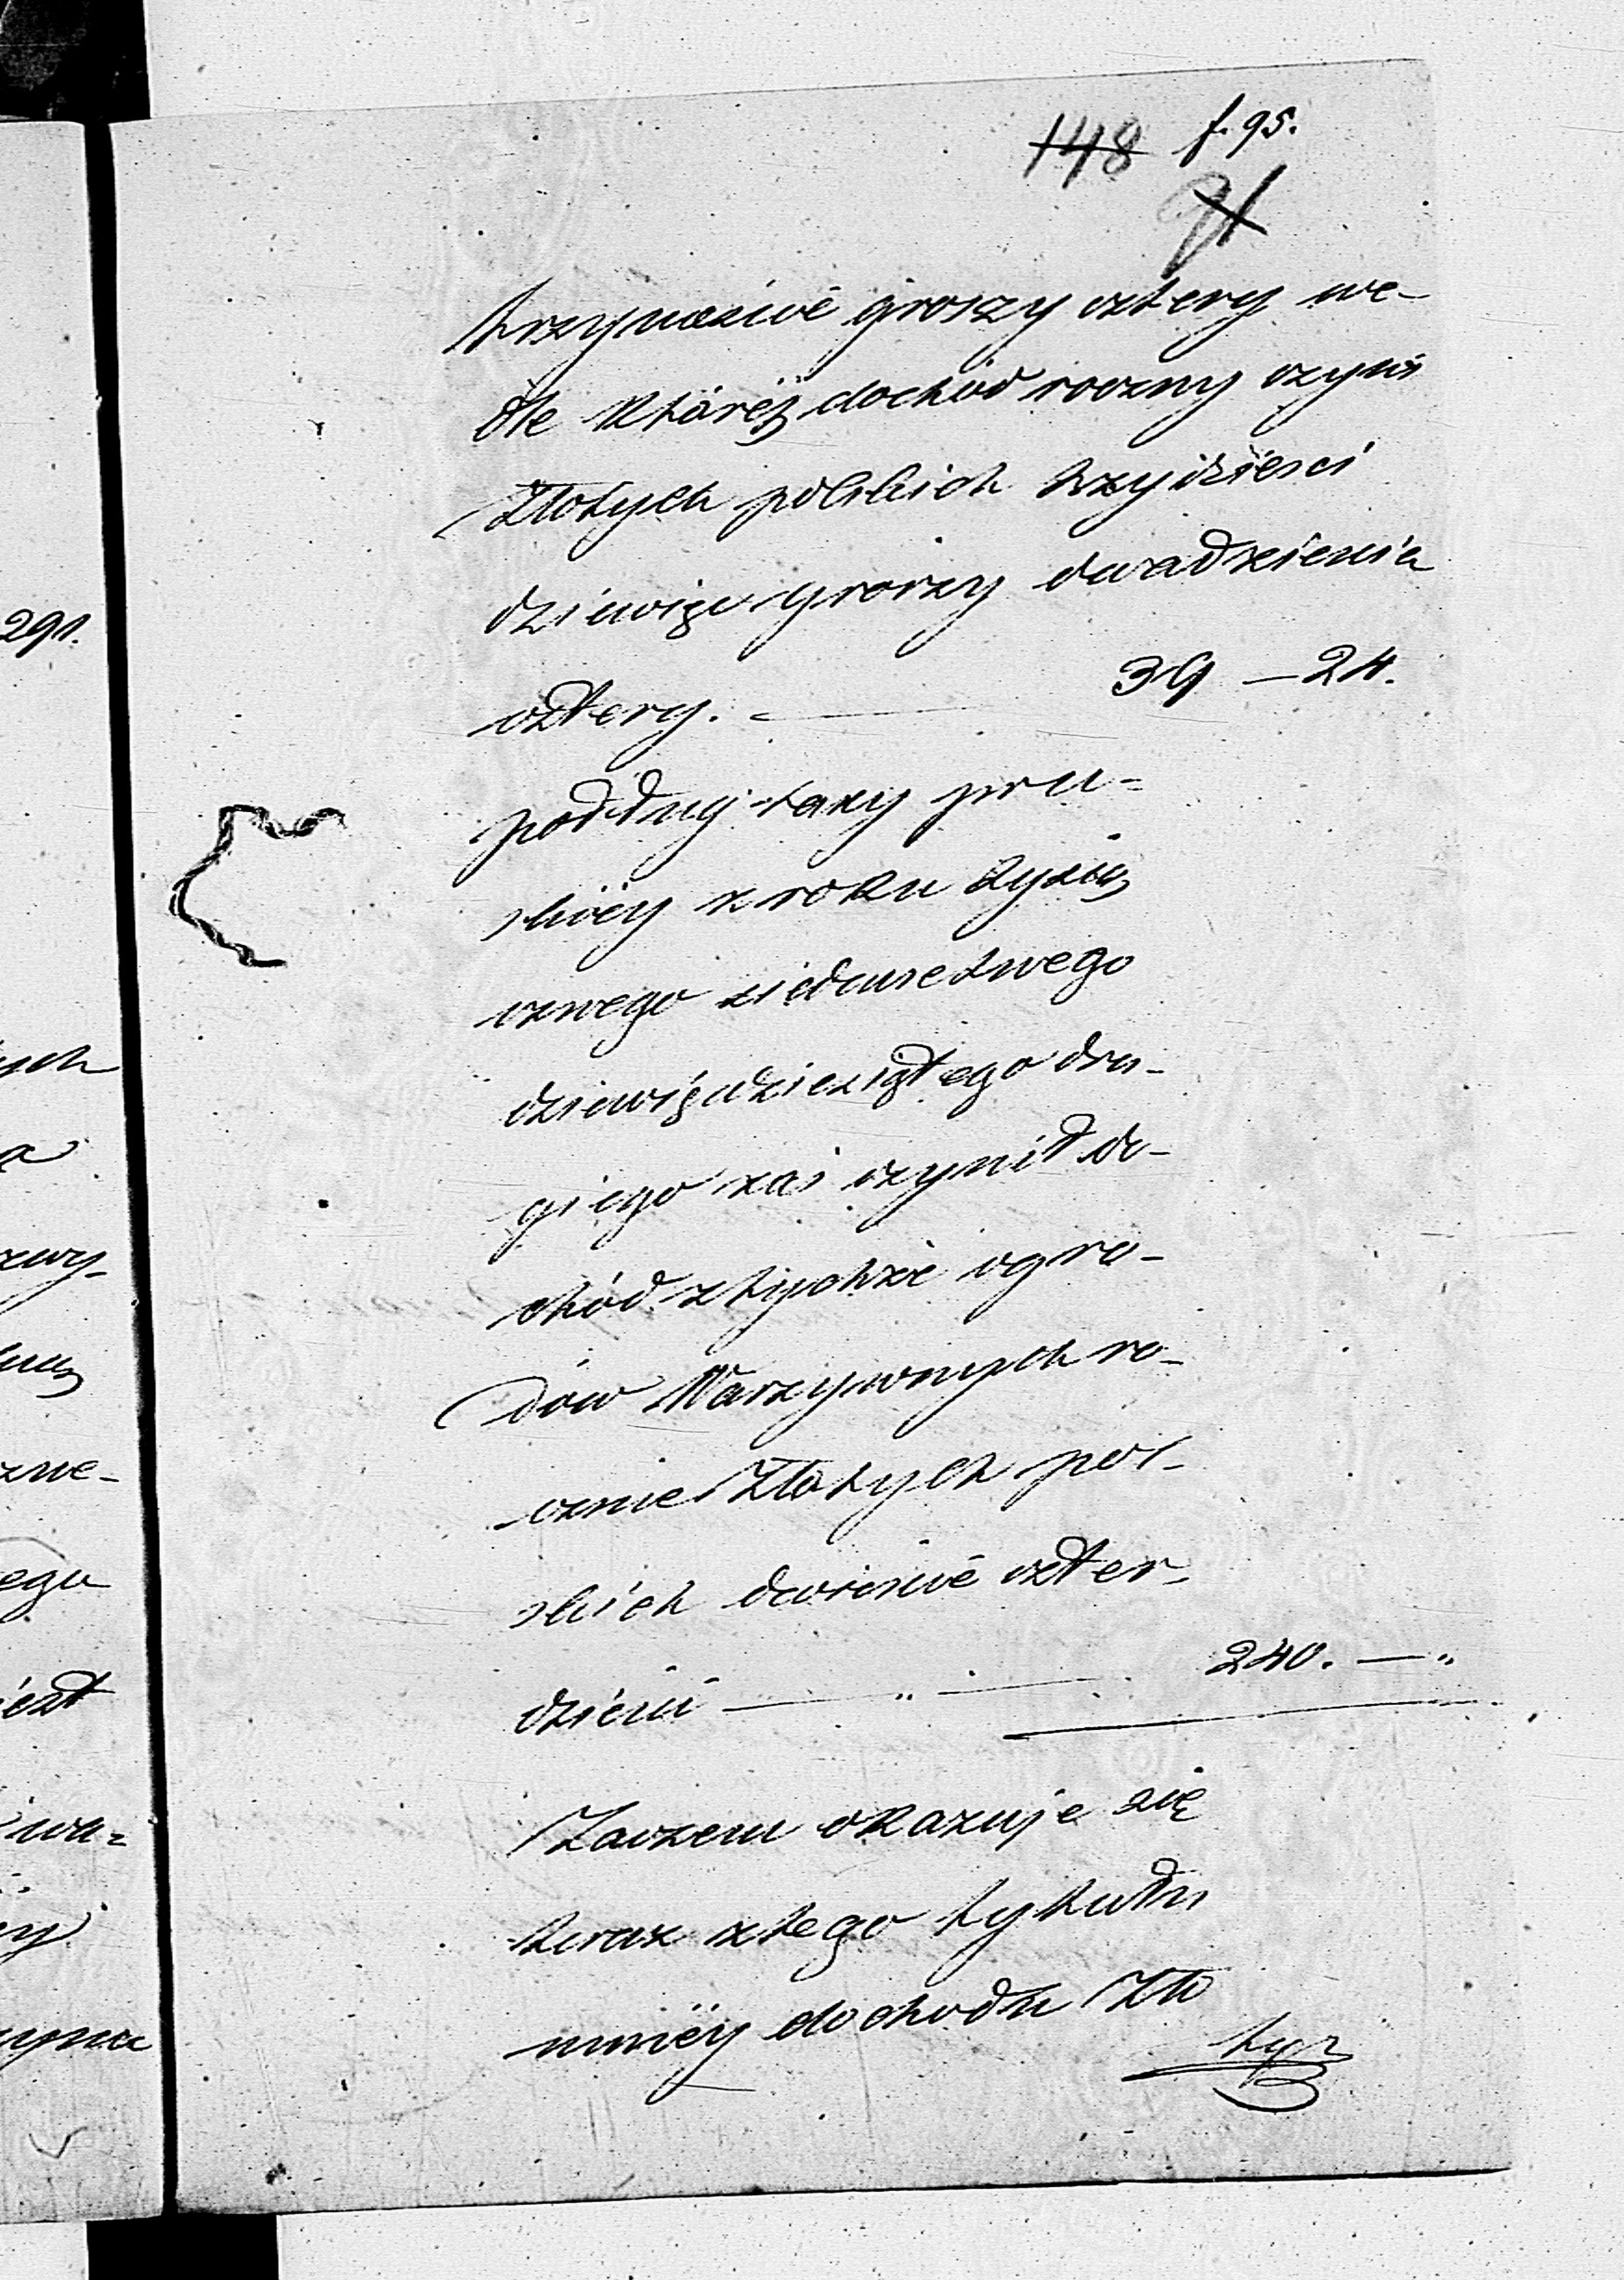 148 f. 95.
91
trzynaście groszy cztery we-
dle któréÿ dochód roczny czyni
Złotych polskich trzydzieści
dziewięć groszy dwadzieścia
cztery. — 39 — 24.
podług taxy pru-
skiéy z roku tysią
cznego siedmsetnego
dziewięćdziesiątego dru-
giego zaś czynił do-
chód z tychże ogro-
dów Warzywnych ro-
cznie Złotych pol-
skich dwieście czter-
dzieści — „ — 240. — „
Zaczem okazuje się
teraz z tego tytułu
mniéy dochodu Zło
tych
291.
ych
a
zwy-
zne-
ego
iest